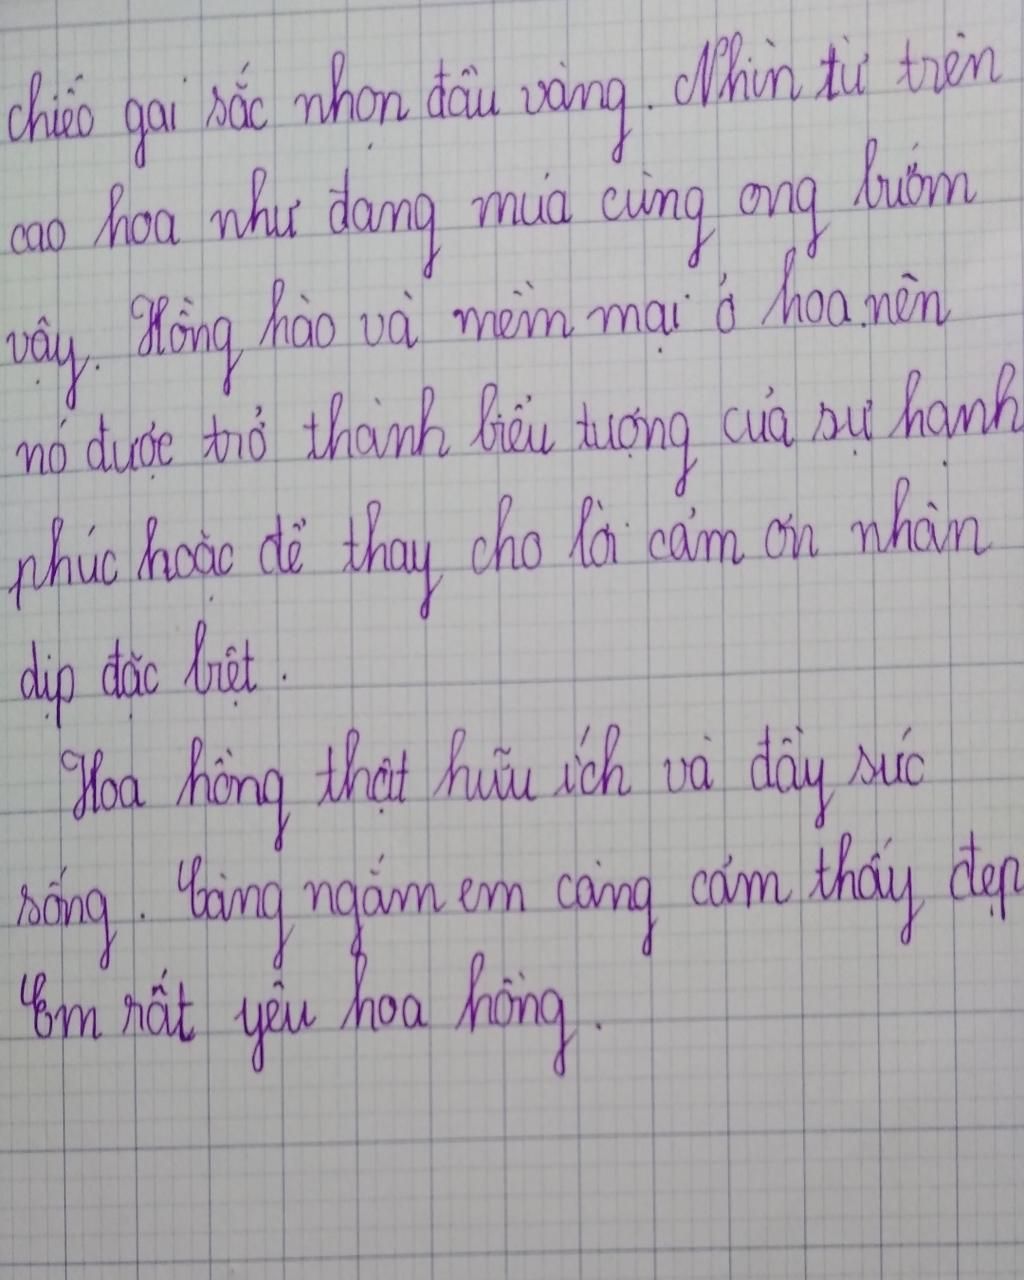 chiếc gai sắc nhọn đầu vàng. Nhìn từ trên
cao hoa như đang múa cùng ong bướm
vậy. Hồng hào và mềm mại ở hoa nên
nó được trở thành biểu tượng của sự hạnh
phúc hoặc để thay cho lời cảm ơn nhân
dịp đặc biệt.
Hoa hồng thật hữu ích và đầy sức
sống. Càng ngắm em càng cảm thấy đẹp
Em rất yêu hoa hồng.